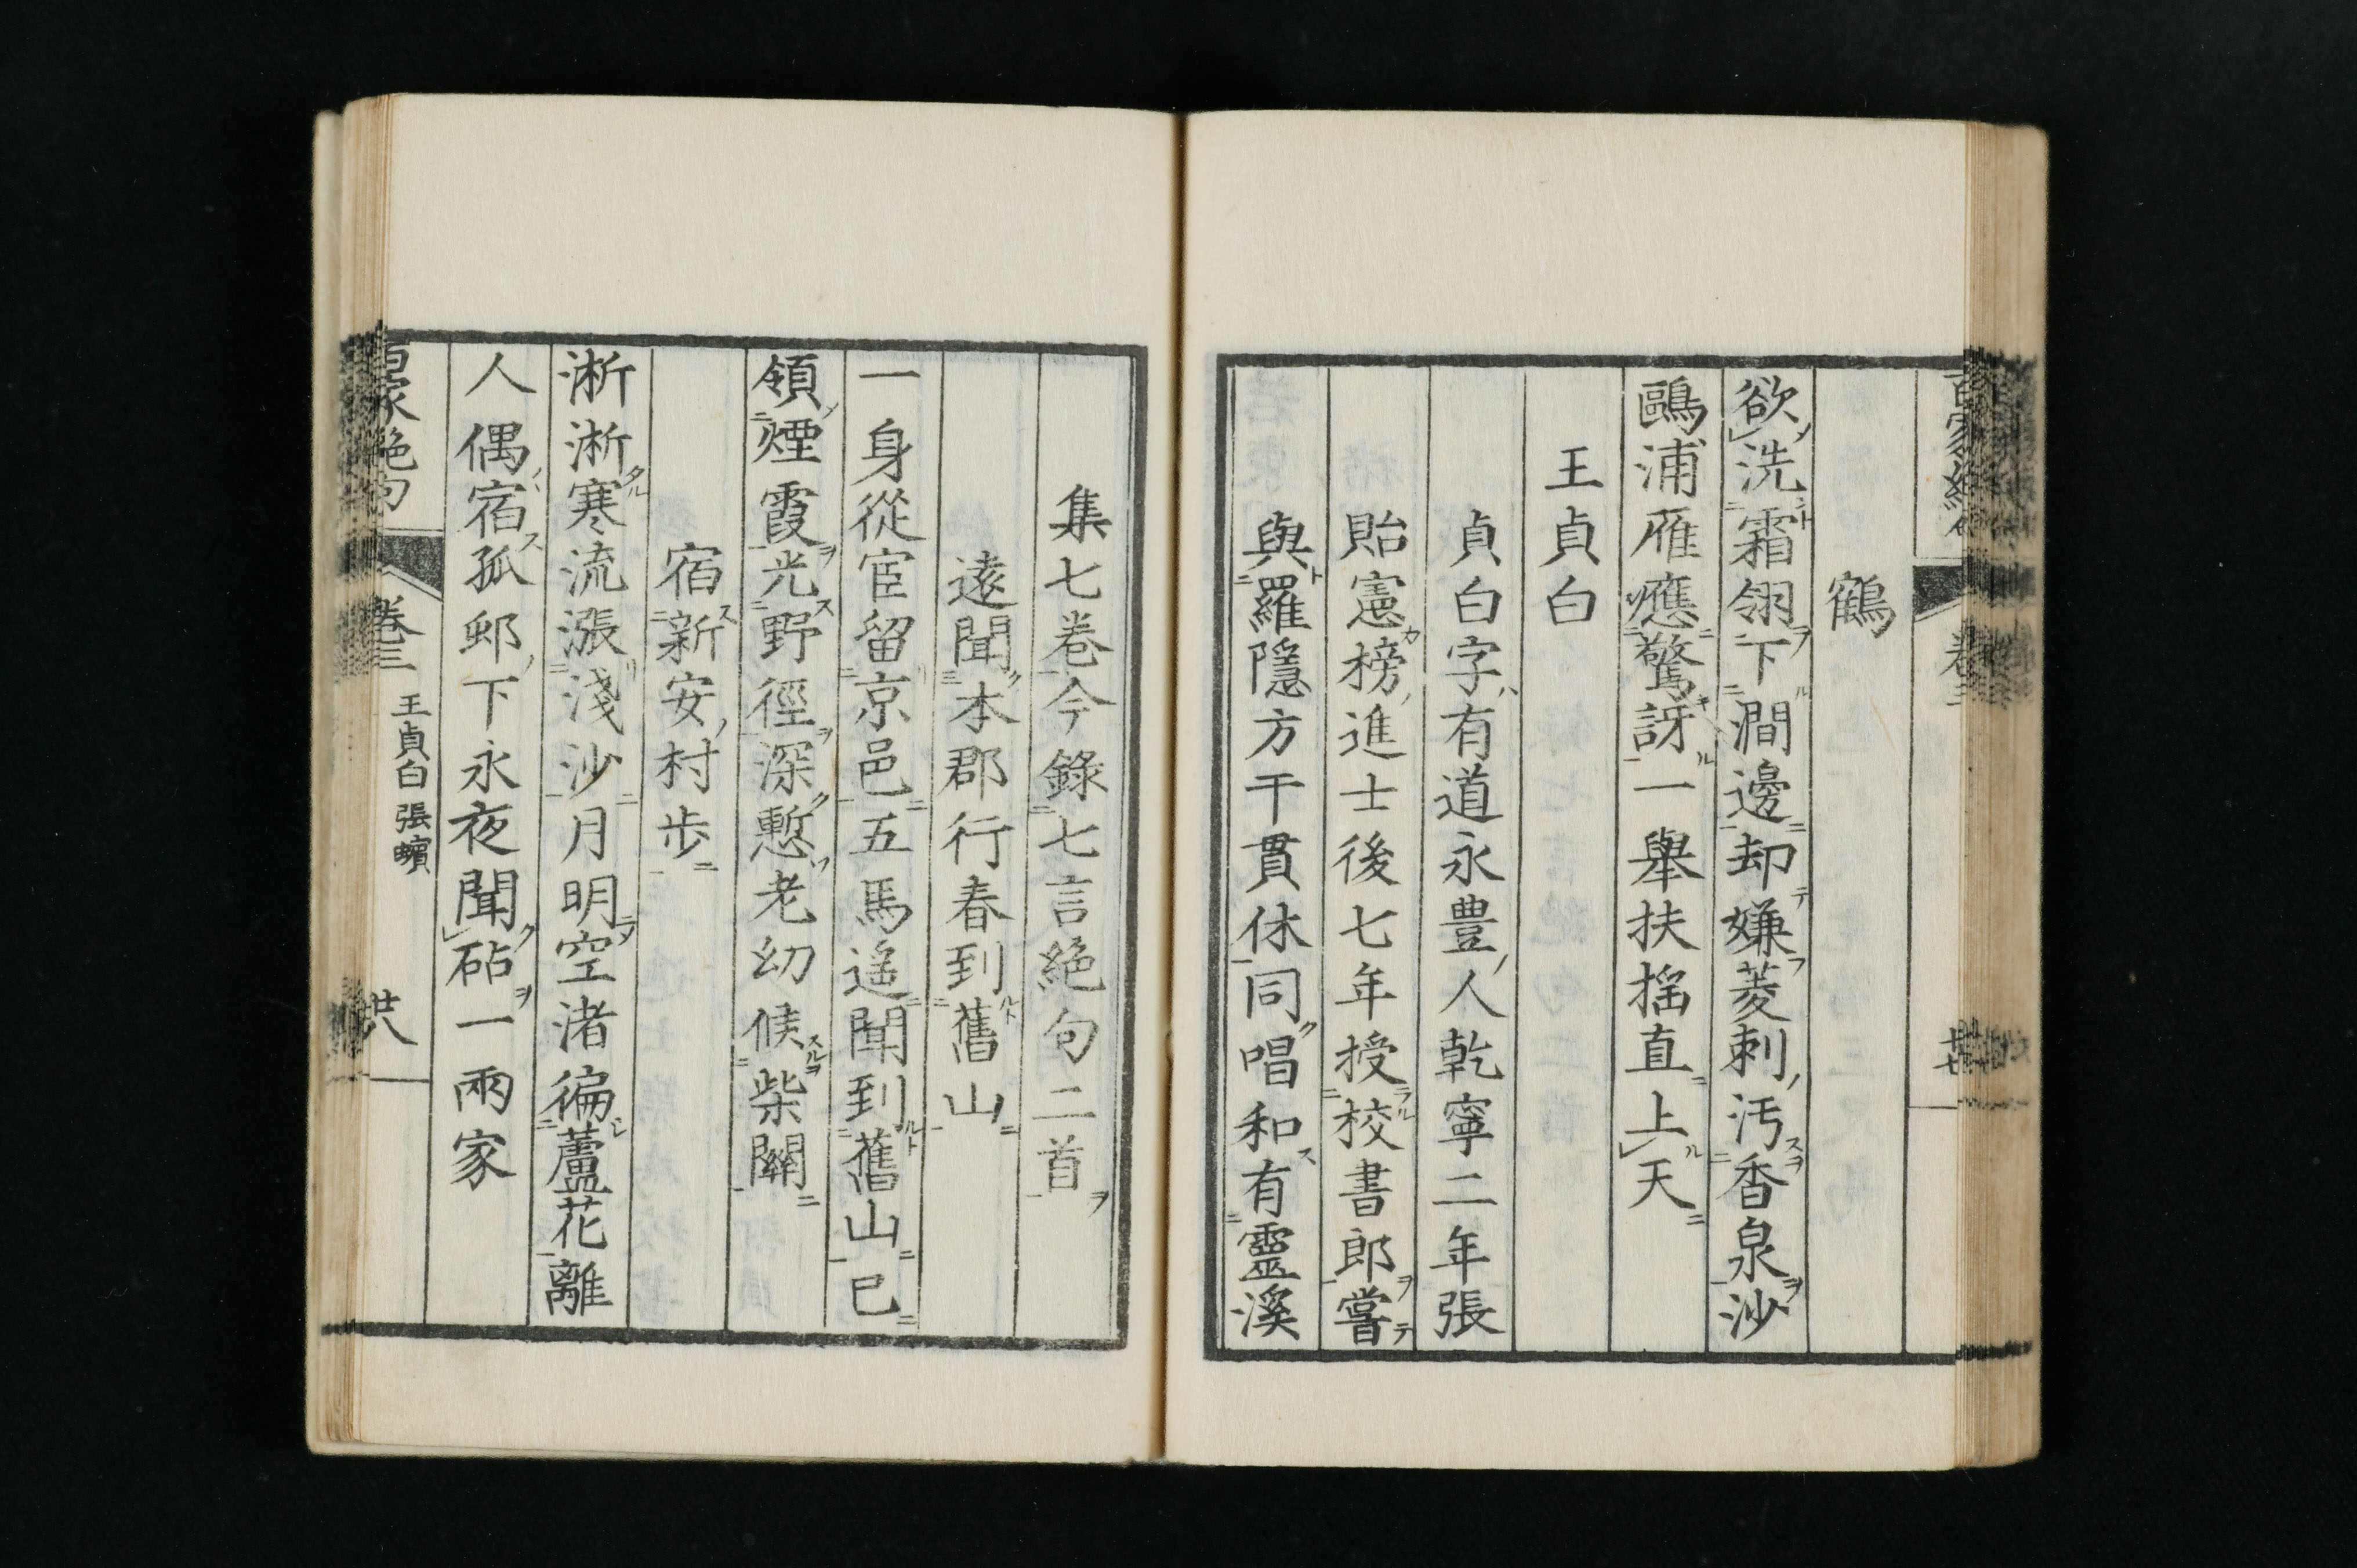 百家絶句
卷三
廿七
鶴
欲洗霜翎下澗邊却嫌菱刺汚香泉沙
鷗浦雁應驚訝一舉扶搖直上天
王貞白
貞白字有道永豊人乾寧二年張
貽憲榜進士後七年授校書郎嘗
與羅隱方干貫休同唱和有靈溪
集七卷今錄七言絶句二首
遠聞本郡行春到舊山
一身從宦留京邑五馬遙聞到舊山已
領煙霞光野徑深慙老幼候柴關
宿新安村步
淅淅寒流漲淺沙月明空渚徧蘆花離
人偶宿孤邨下永夜聞砧一兩家
百家絶句
卷三
王貞白 張蠙
廿八